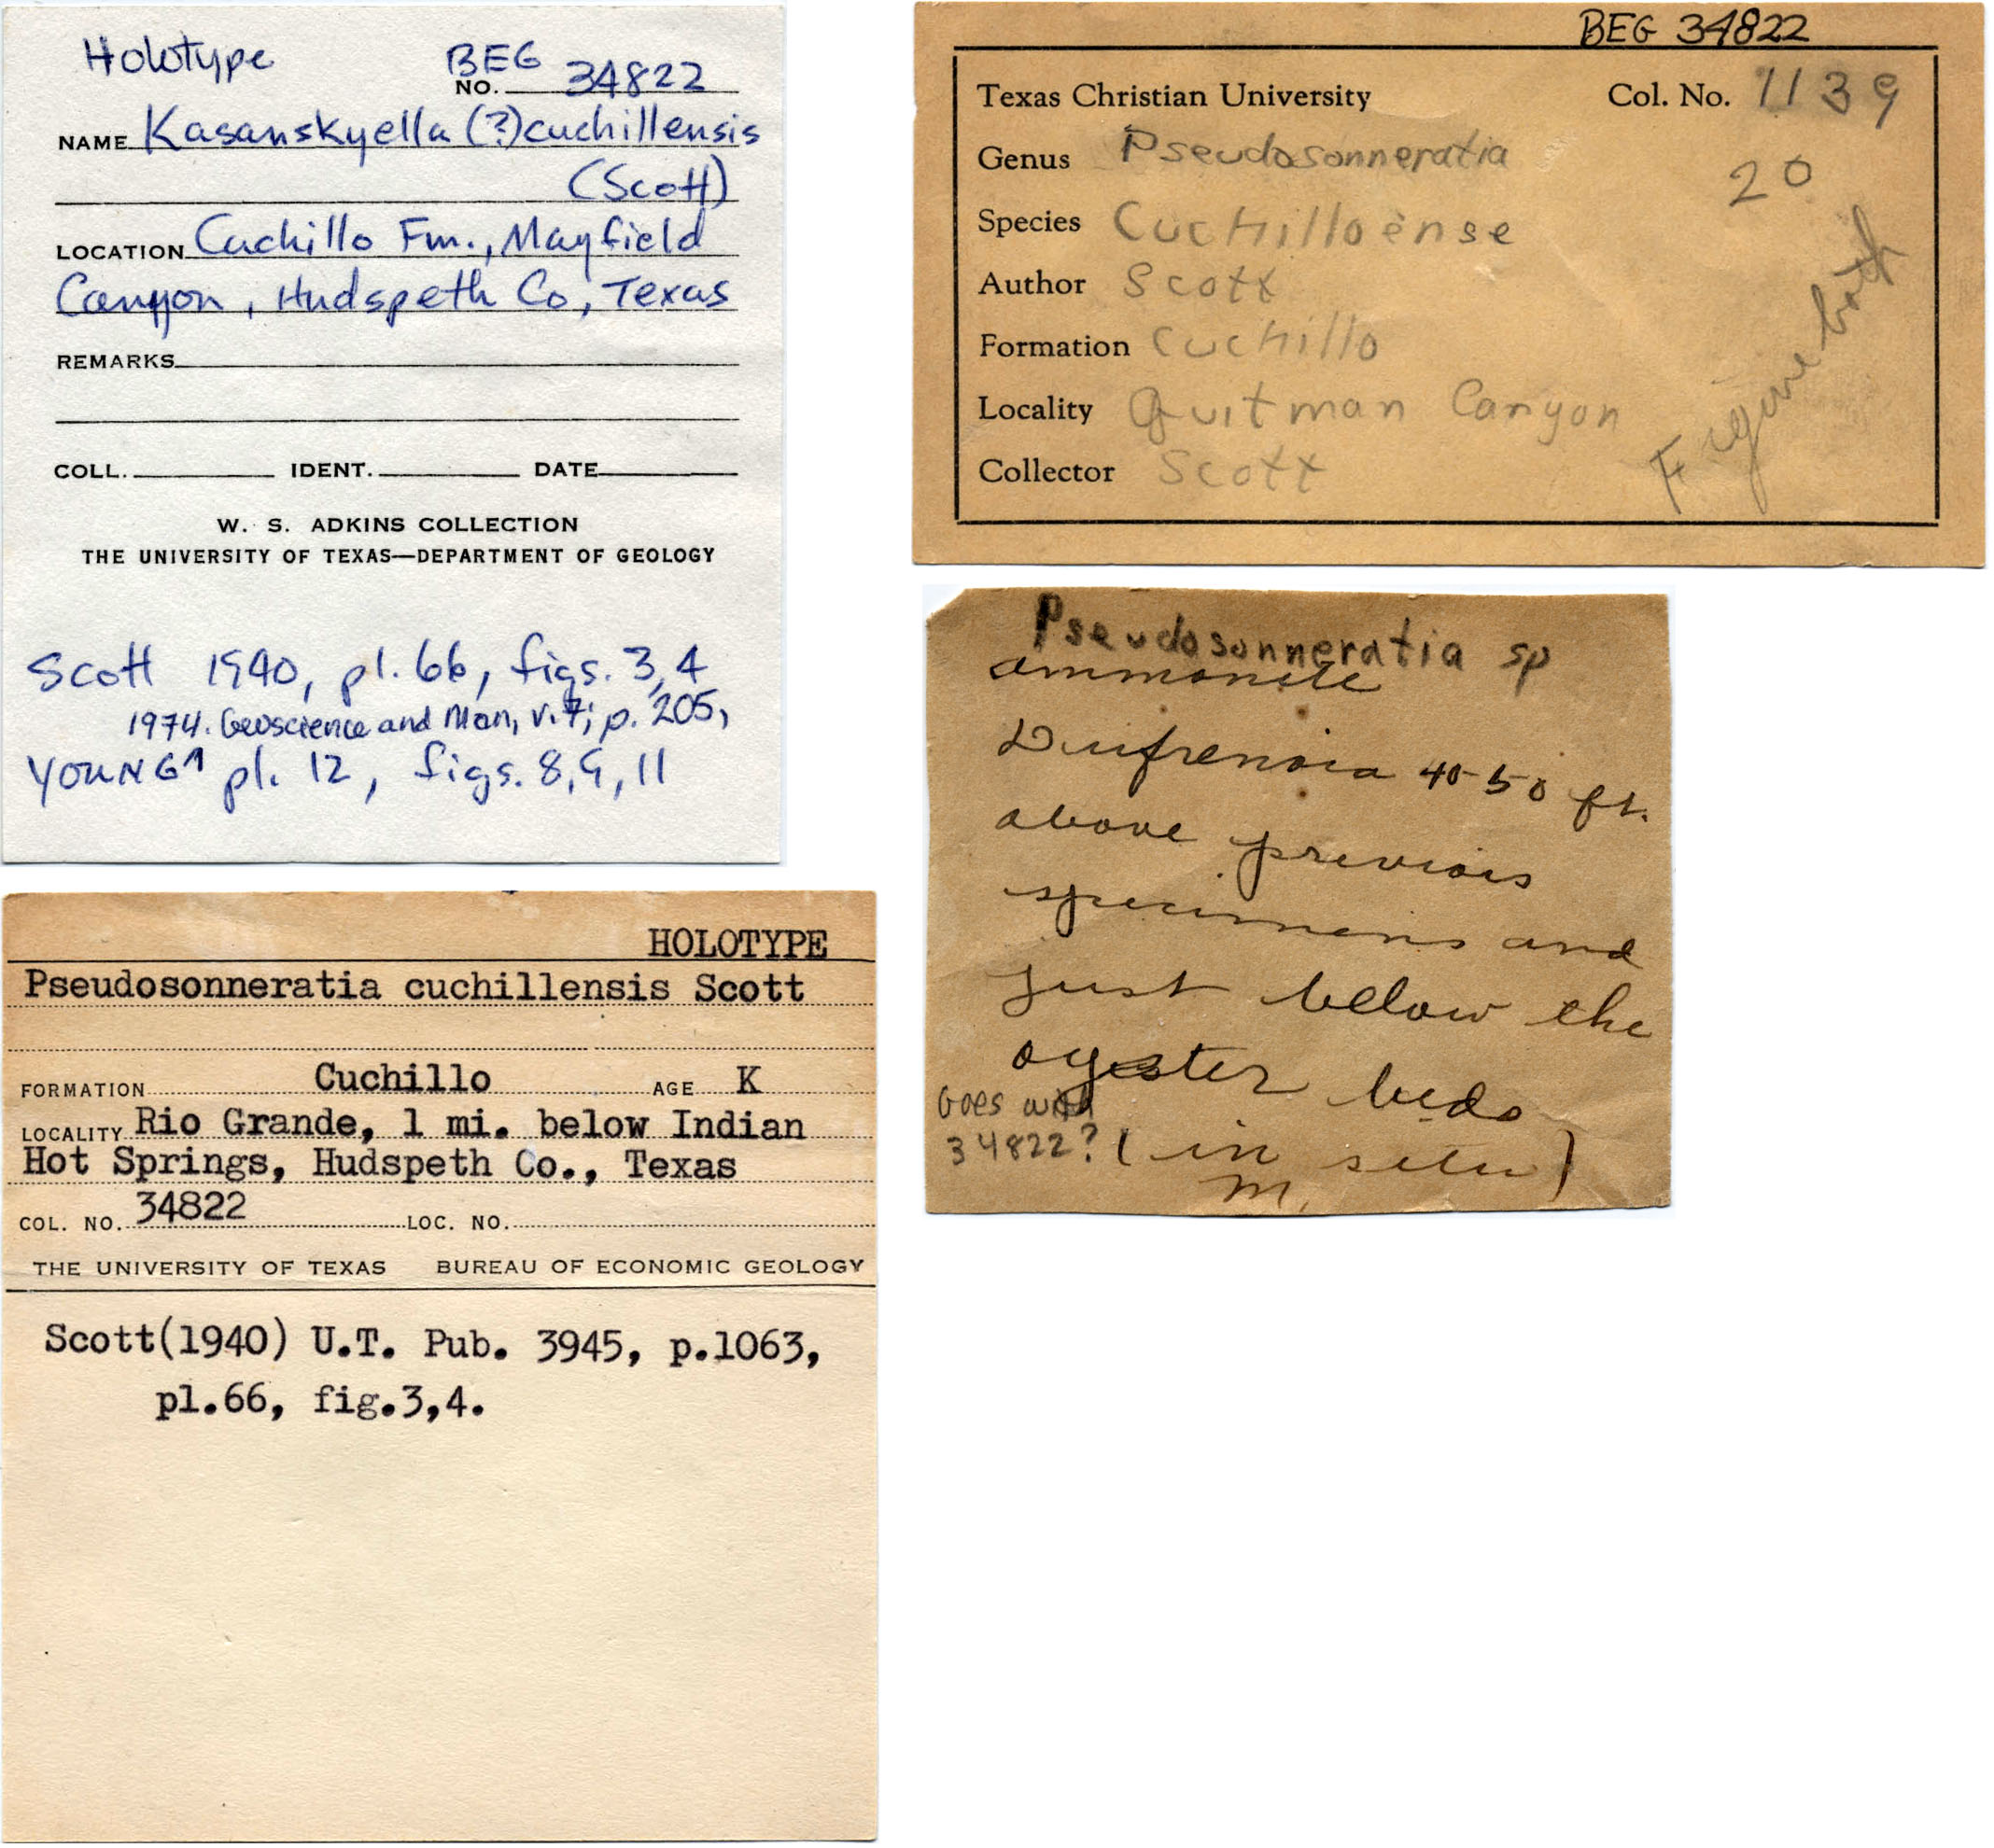 Holotype
BEG
NO. 34822
NAME Kasanskyella (?) cuchillensis
(Scott)
LOCATION Cuchillo Fm., Mayfield
Canyon, Hudspeth Co, Texas
REMARKS
COLL. IDENT. DATE
W. S. ADKINS COLLECTION
THE UNIVERSITY OF TEXAS—DEPARTMENT OF GEOLOGY
Scott 1940, pl. 66, figs. 3,4
1974. Geoscience and Man, v. 7; p. 205,
YOUNG pl. 12, figs. 8,9,11
HOLOTYPE
Pseudosonneratia cuchillensis Scott
FORMATION Cuchillo AGE K
LOCALITY Rio Grande, 1 mi. below Indian
Hot Springs, Hudspeth Co., Texas
COL. NO. 34822 LOC. NO.
THE UNIVERSITY OF TEXAS BUREAU OF ECONOMIC GEOLOGY
Scott(1940) U.T. Pub. 3945, p.1063,
pl.66, fig.3,4.
BEG 34822
Texas Christian University Col. No. 1139
Genus Pseudosonneratia
20
Species Cuchilloense
Author Scott
Formation Cuchillo
Locality Quitman Canyon
Collector Scott
Figure both
Pseudosonneratia sp
ammonite
Dufrenoia 40-50 ft.
above previois
specimens and
just below the
oyester beds
Goes with
34822? (in situ)
M.